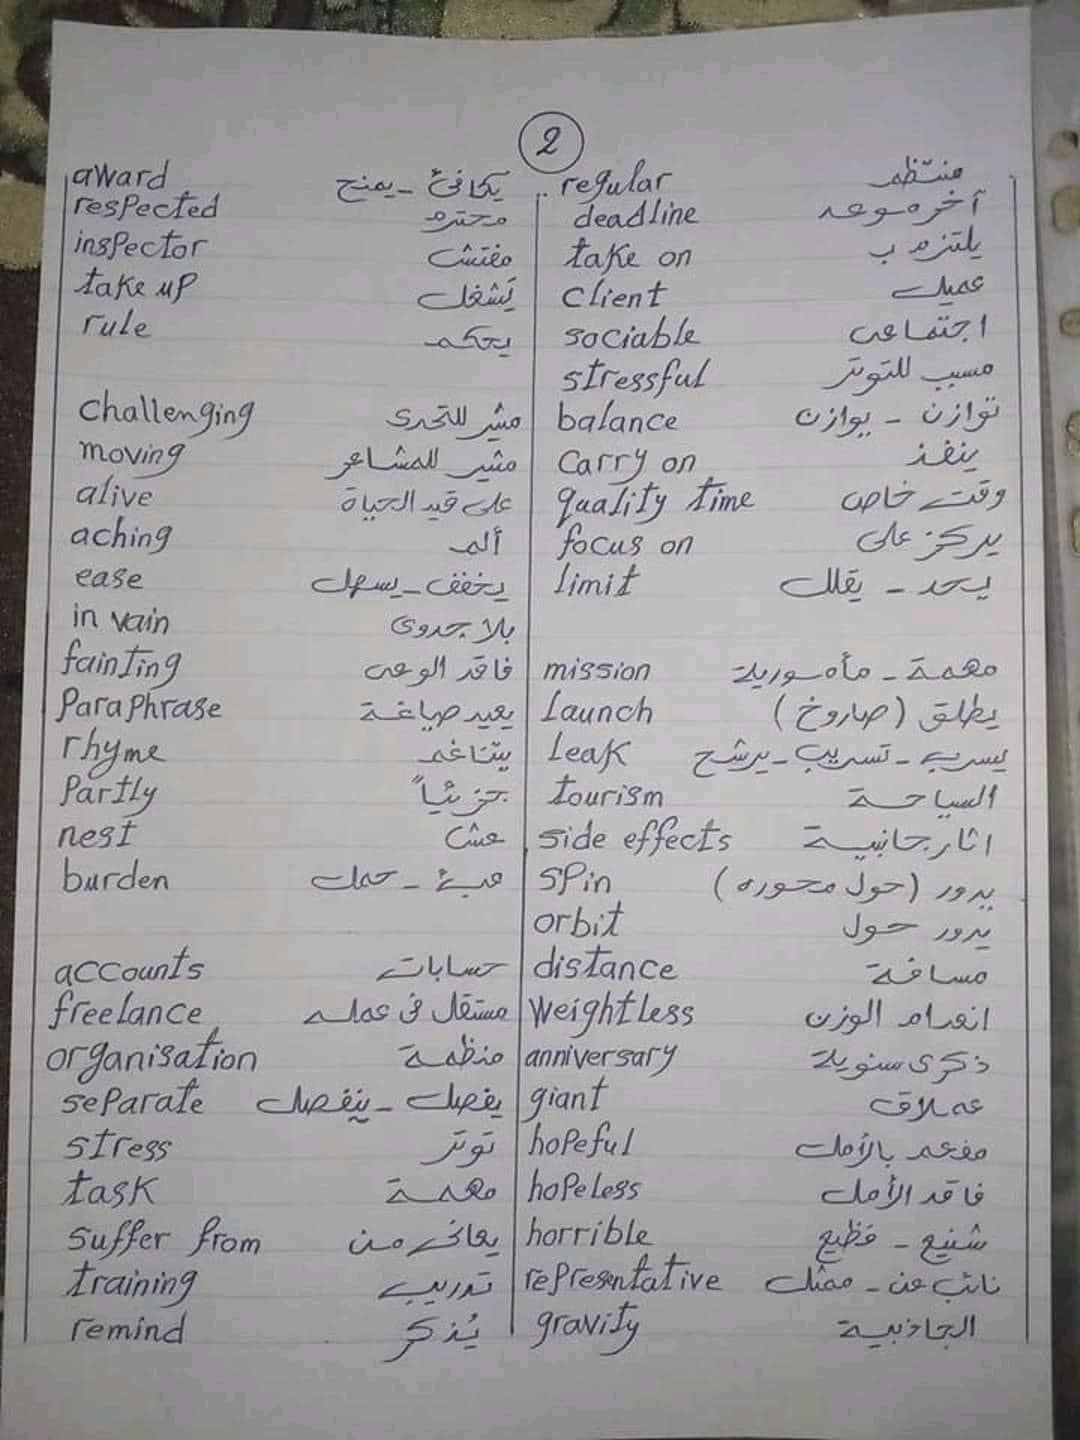 2
award يكافئ - يمنح
respected محترم
inspector مفتش
take up يَشغل
rule يحكم
challenging مثير للتحدى
moving مثير للمشاعر
alive على قيد الحياة
aching ألم
ease يخفف - يسهل
in vain بلا جدوى
fainting فاقد الوعى
Paraphrase يعيد صياغة
rhyme يتناغم
Partly جزئياً
nest عش
burden عبئ - حمل
accounts حسابات
freelance مستقل فى عمله
organisation منظمة
separate يفصل - ينفصل
stress توتر
task مهمة
suffer from يعانى من
training تدريب
remind يُذكر
regular منتظم
deadline آخر موعد
take on يلتزم ب
client عميل
sociable اجتماعى
stressful مسبب للتوتر
balance توازن - يوازن
carry on ينفذ
quality time وقت خاص
focus on يركز على
limit يحد - يقلل
mission مهمة - مأمورية
launch يطلق (صاروخ)
leak يسرب - تسريب - يرشح
tourism السياحة
side effects اثار جانبية
spin يدور (حول محوره)
orbit يدور حول
distance مسافة
weightless انعدام الوزن
anniversary ذكرى سنوية
giant عملاق
hopeful مفعم بالأمل
hopeless فاقد الأمل
horrible شنيع - فظيع
representative نائب عن - ممثل
gravity الجاذبية